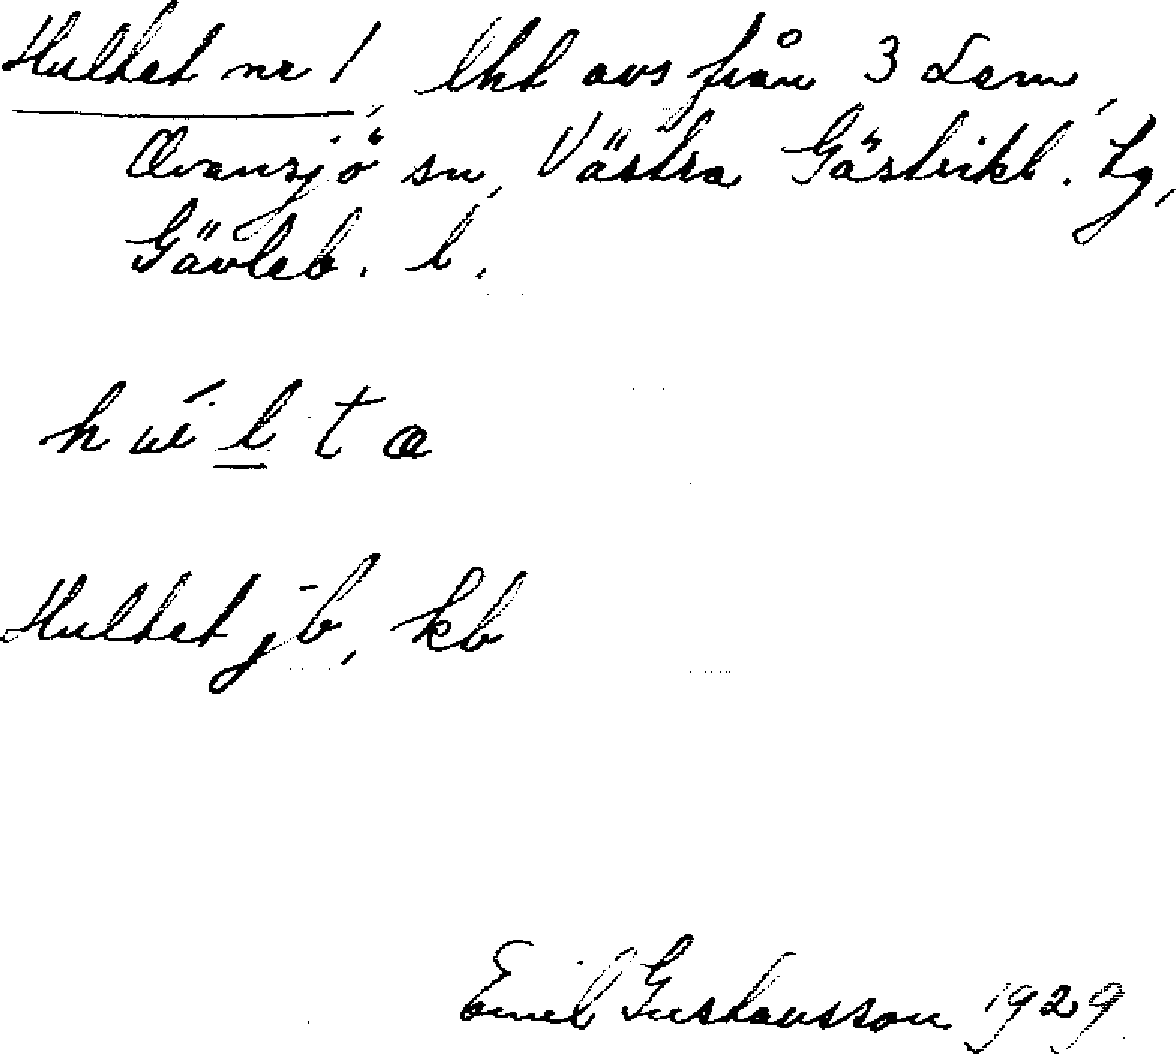 Hultet nr 1, lht avs från 3 Lem,
Ovansjö sn, Västra Gästrikl. tg,
Gävleb. l.
h u l t a
Hultet jb, kb
Emil Gustavsson 1929